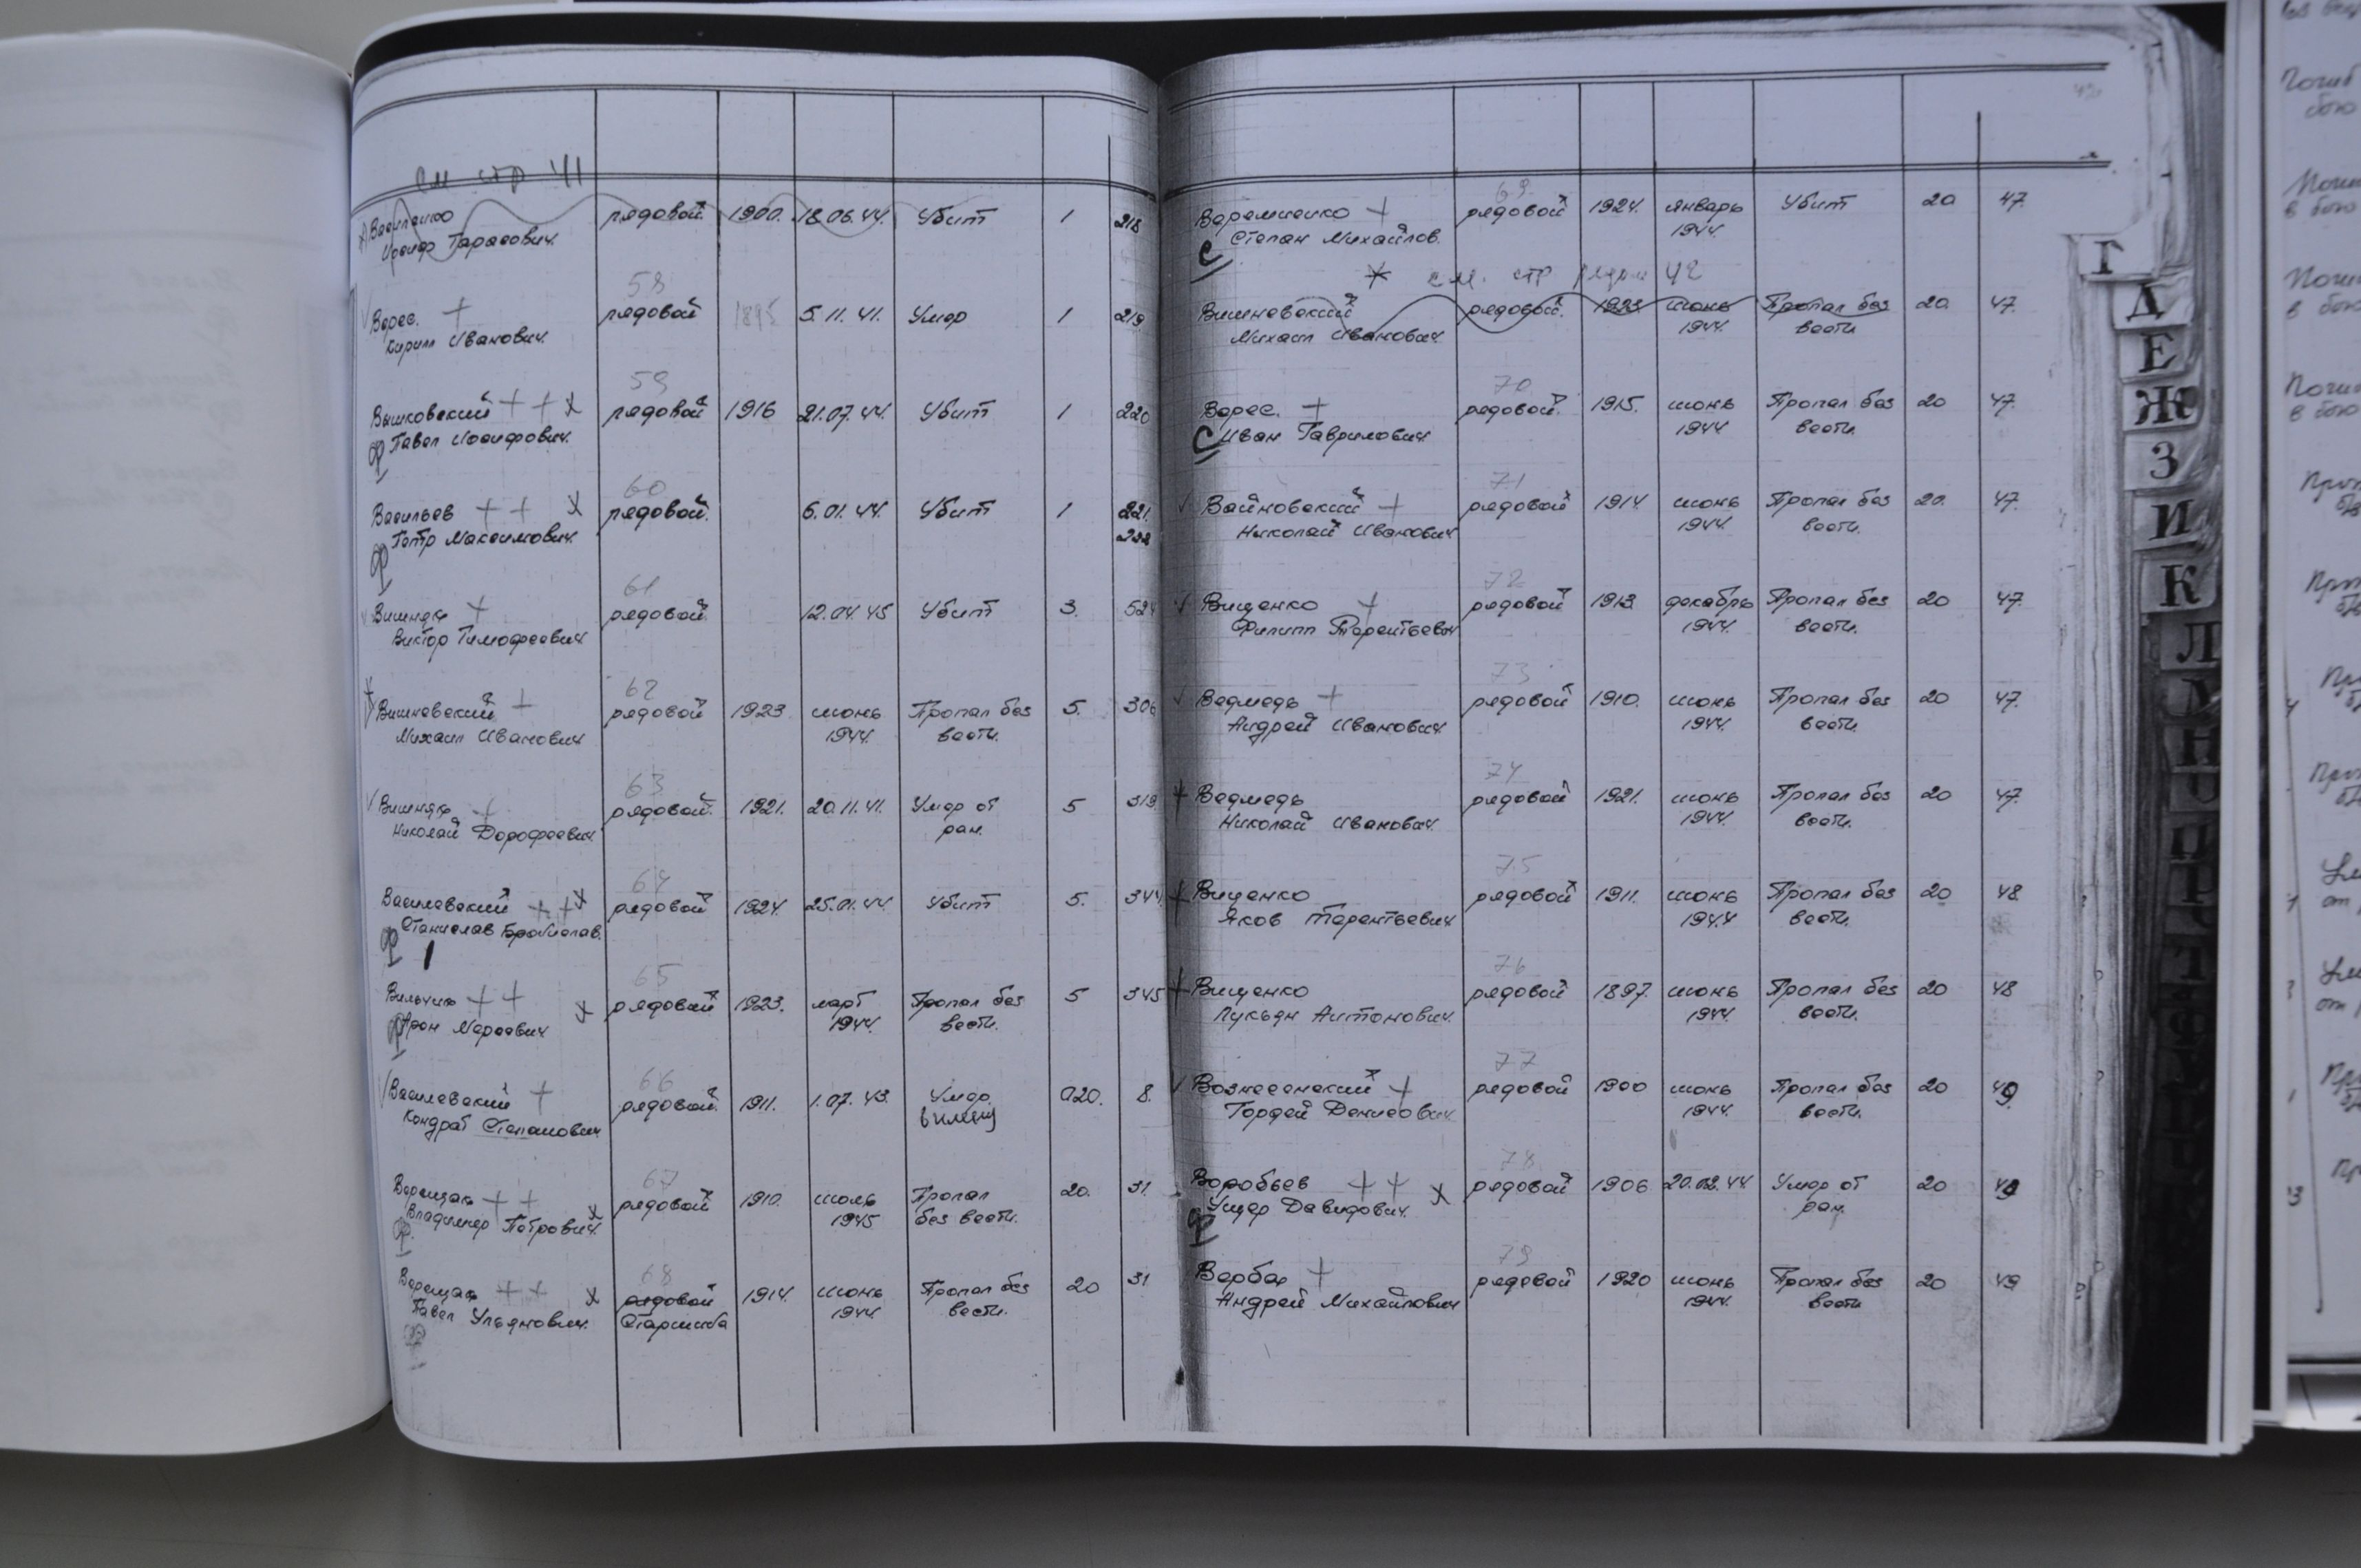 см стр 41
Василенко рядовой 1900. 18.06.44. Убит 1 218
Иосиф Тарасович.
58
Верес. + рядовой 1895 5.11.41. Умер 1 219
Кирилл Иванович.
59
Вышковский + + х рядовой 1916 21.07.44. Убит 1 220
ф Павел Иосифович.
60
Васильев + + х рядовой. 6.01.44. Убит 1 221.
ф Петр Максимович.
61
Вишняк + рядовой. 12.04.45 Убит 3. 524
Виктор Тимофеевич
62
Вишневский + рядовой 1923 июнь Пропал без 5. 306
Михаил Иванович 1944. вести.
63
Вишняк + рядовой. 1921. 20.11.41. Умер от 5 319
Николай Дорофеевич. ран.
64
Василевский + + х рядовой 1924. 25.01.44. Убит 5. 344
ф Станислав Бронислав.
65
Вильчик + + х рядовой 1923. март Пропал без 5 345
ф Арон Мареевич 1944. вести.
66
Василевский + рядовой. 1911. 1.07.43. Умер. 920. 8.
Кондрат Степанович в плену
67
Верещак + + х рядовой 1910. июль Пропал 20. 31.
ф Владимир Петрович. 1945 без вести.
68
Верещак + + х рядовой 1914. июнь Пропал без 20 31
Павел Ульянович. Старшина 1944. вести.
69
Веремиенко + рядовой 1924. январь Убит 20. 47.
С Степан Михайлов. 1944.
* см. стр рядом 42
Вишневский рядовой. 1923 июнь Пропал без 20. 47.
Михаил Иванович 1944. вести
70
Верес. + рядовой. 1915. июнь Пропал без 20 47.
С Иван Гаврилович 1944 вести.
71
Войновский + рядовой 1914. июнь Пропал без 20. 47.
Николай Иванович 1944. вести.
72
Вищенко + рядовой 1913. декабрь Пропал без 20 47.
Филипп Терентьевич 1944. вести.
73
Ведмедь + рядовой 1910. июнь Пропал без 20 47.
Андрей Иванович 1944. вести.
74
Ведмедь рядовой 1921. июнь Пропал без 20 47.
Николай Иванович 1944. вести.
75
Вищенко рядовой 1911. июнь Пропал без 20 48.
Яков Терентьевич 1944 вести.
76
Вищенко рядовой 1897. июнь Пропал без 20 48
Лукьян Антонович. 1944. вести.
77
Вознесенский + рядовой 1900 июнь Пропал без 20 49
Гордей Денисович 1944. вести.
78
Воробьев + + х рядовой 1906 20.02.44. Умер от 20
ф Ушер Давидович. ран.
79
Верба + рядовой 1920 июнь Пропал без 20 49
Андрей Михайлович 1944. вести
Г
Д
Е
Ж
З
И
К
Л
М
Н